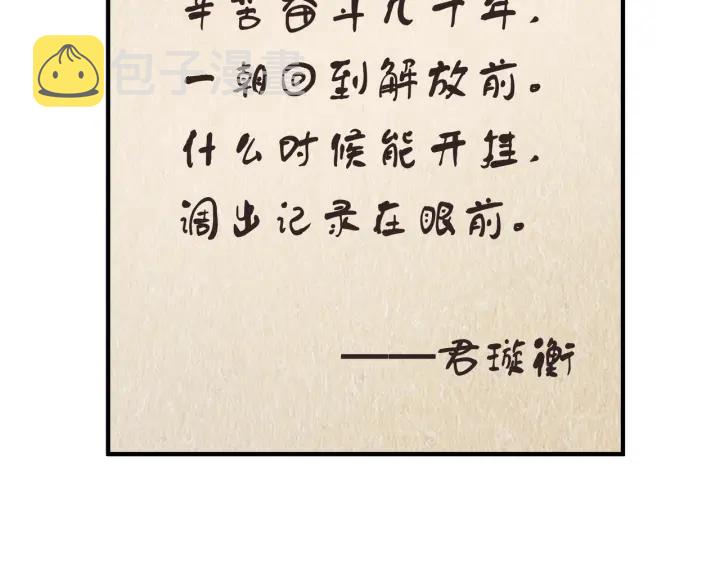 辛苦奋斗几十年，
包子漫畫
一朝回到解放前。
什么时候能开挂，
调出记录在眼前。
——君璇衡